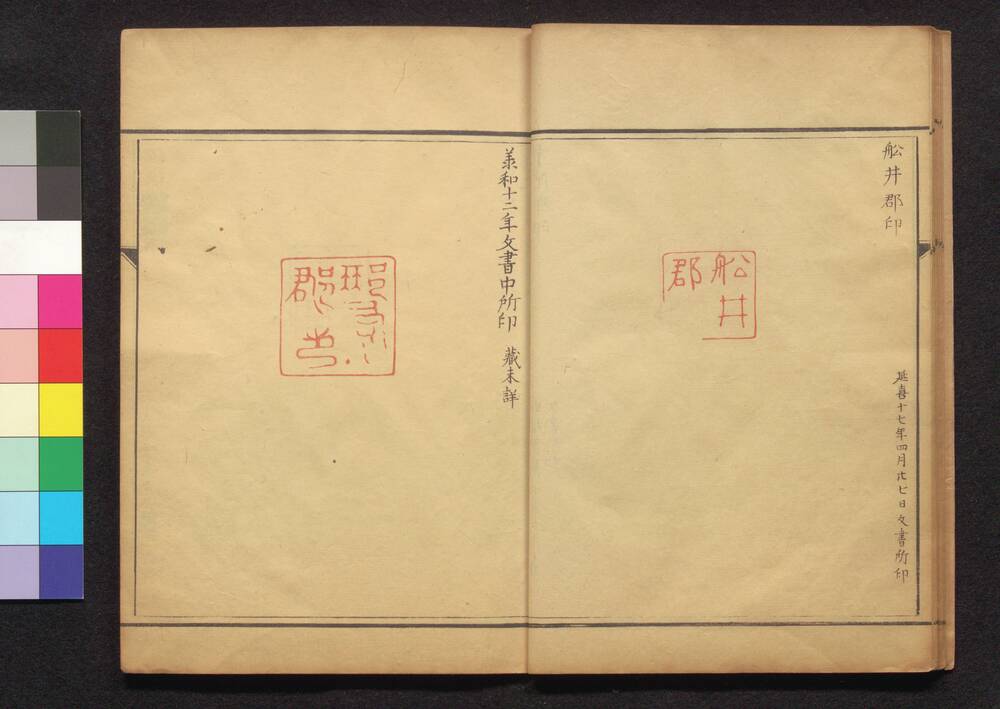 舩井郡印
延喜十七年四月廿七日文書所印
舩井
郡
承和十二年文書中所印 藏未詳
郡印